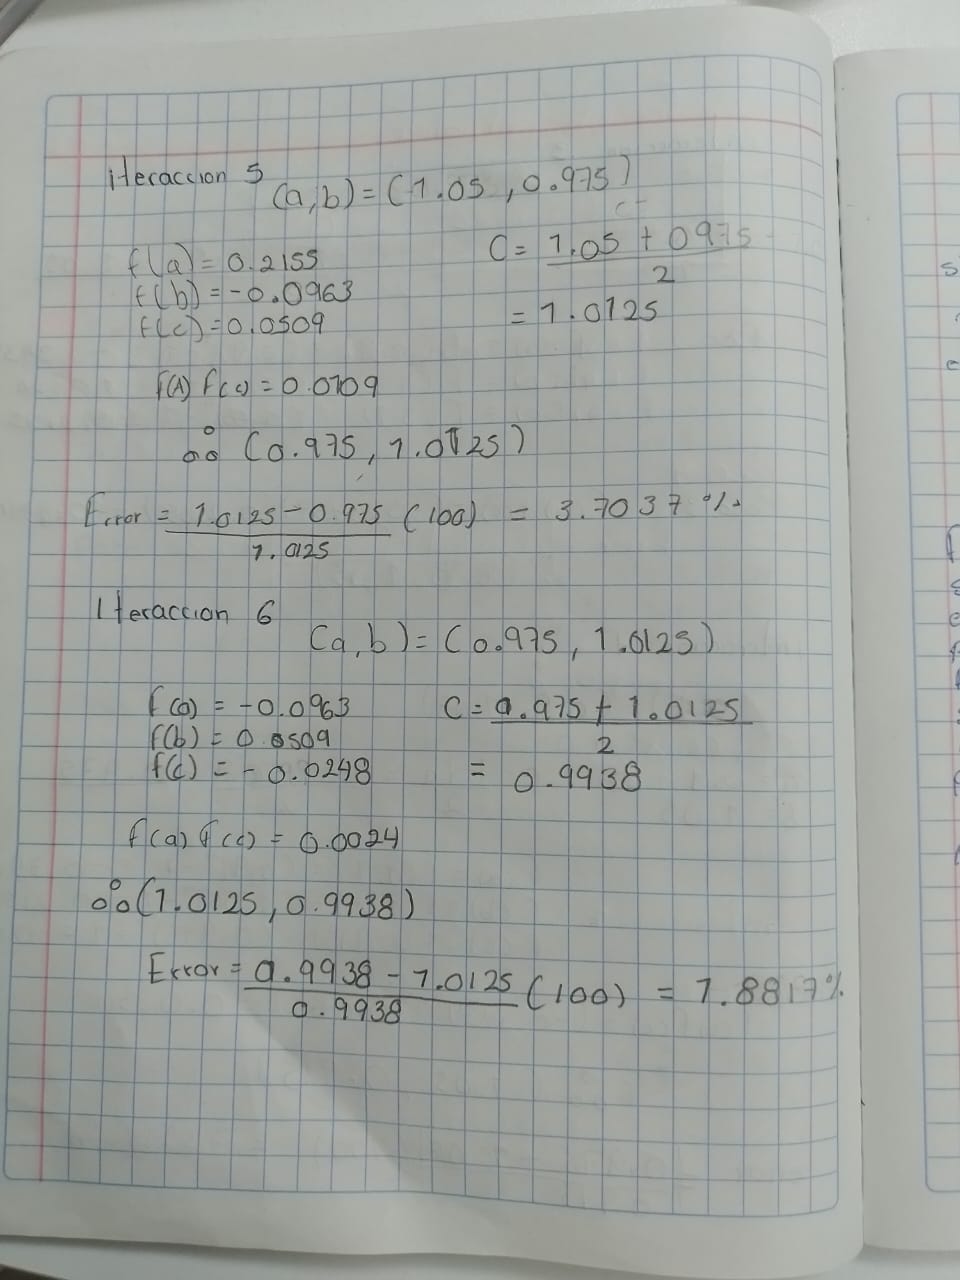 iteraccion 5
(a,b)=(1.05, 0.975)
f(a)=0.2155
f(b)=-0.0963
f(c)=0.0509
C= 1.05 + 0975
2
= 1.0125
f(A) f(c)=0.0109
(0.975, 1.0125)
Error = 1.0125-0.975 (100) = 3.7037 %
1.0125
Iteraccion 6
(a,b)=(0.975, 1.0125)
f(a) = -0.0963
f(b) = 0.0509
f(c) = -0.0248
C= 0.975 + 1.0125
2
= 0.9938
f(a) f(c) = 0.0024
(1.0125, 0.9938)
Error = 0.9938 - 1.0125 (100) = 1.8817%
0.9938